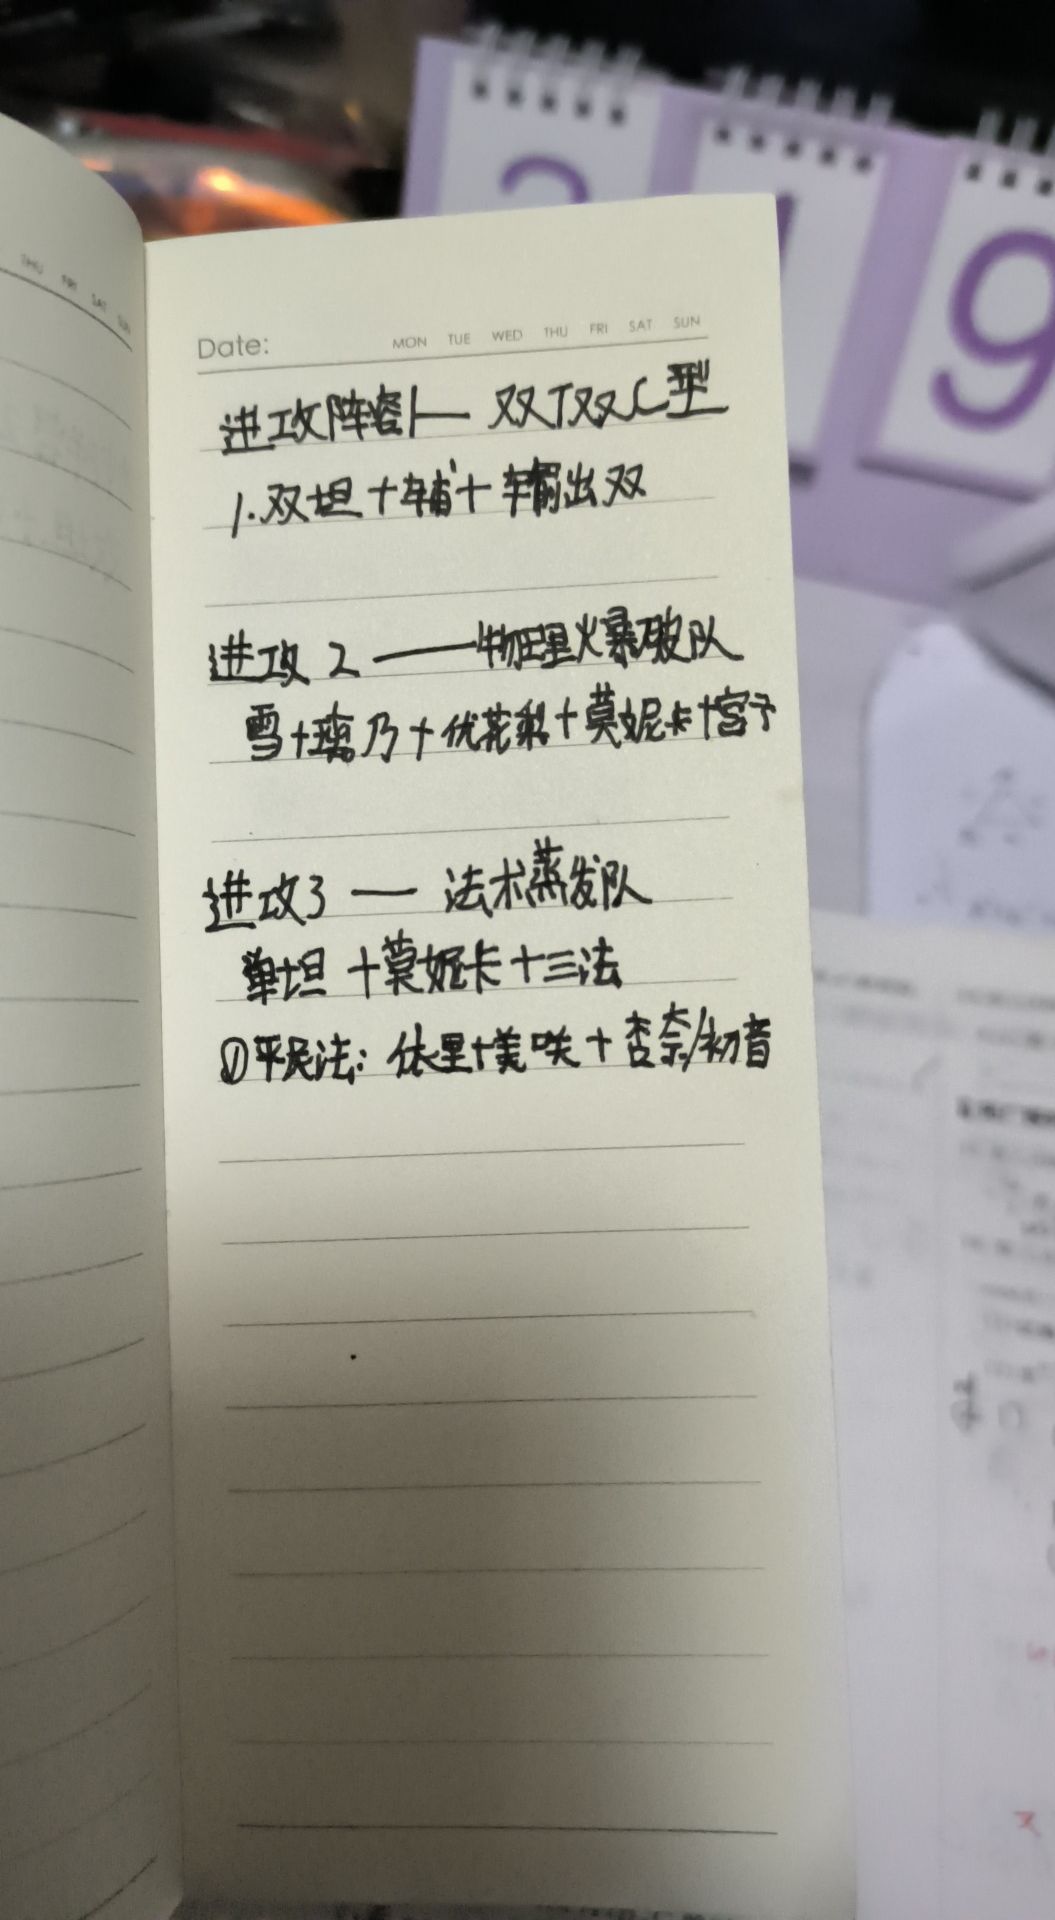 THU FRI SAT SUN
2 1 9
Date: MON TUE WED THU FRI SAT SUN
进攻阵容1— 双T双C型
1.双坦+辅+输出双
进攻2 ——物理火爆破队
雪+璃乃+优花梨+莫妮卡+宫子
进攻3 — 法术蒸发队
单坦+莫妮卡+三法
①平民法：依里+美咲+杏奈/初音